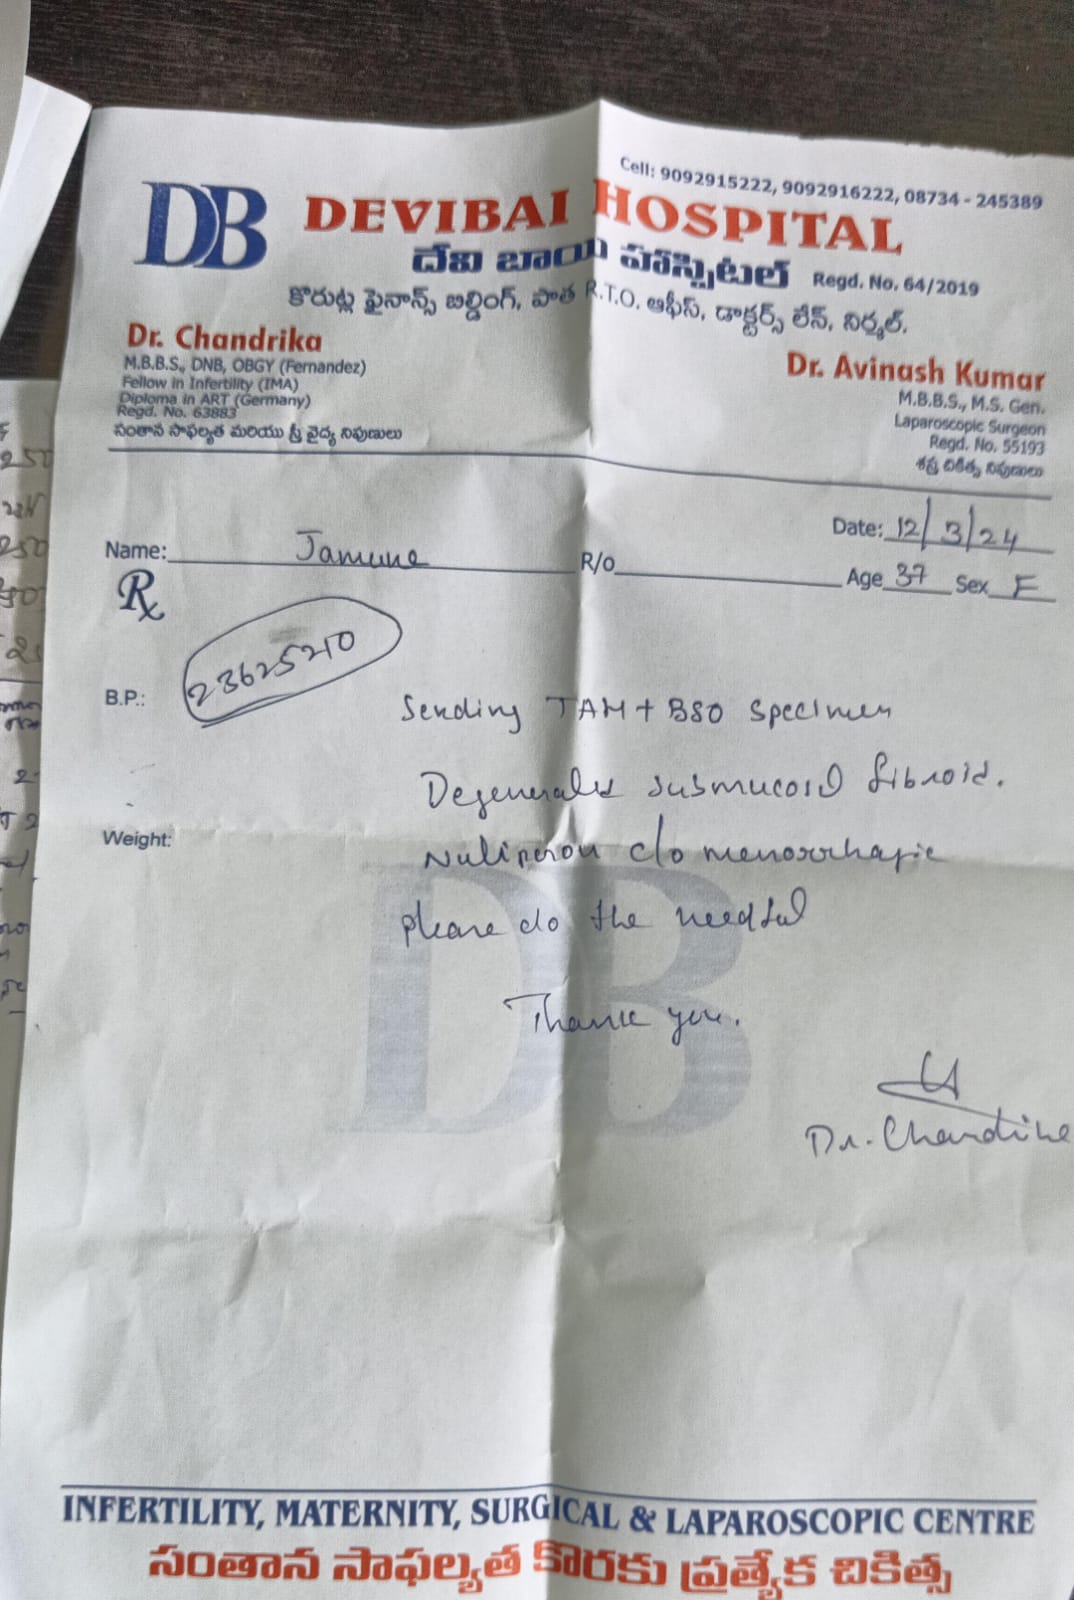 Cell: 9092915222, 9092916222, 08734 - 245389
DB DEVIBAI HOSPITAL
దేవి బాయి హాస్పిటల్ Regd. No. 64/2019
కొరుట్ల ఫైనాన్స్ బిల్డింగ్, పాత R.T.O. ఆఫీస్, డాక్టర్స్ లేన్, నిర్మల్.
Dr. Chandrika
M.B.B.S., DNB, OBGY (Fernandez)
Fellow in Infertility (IMA)
Diploma in ART (Germany)
Regd. No. 63883
సంతాన సాఫల్యత మరియు స్త్రీ వైద్య నిపుణులు
Dr. Avinash Kumar
M.B.B.S., M.S. Gen.
Laparoscopic Surgeon
Regd. No. 55193
శస్త్ర చికిత్స నిపుణులు
Date: 12/3/24
Name: Jamune R/o
Age 37 Sex F
Rx
23625210
B.P.:
Sending TAH + BSO specimen
Degenerated submucosal fibroid.
Weight:
Nuliperou c/o menorrhagie
please do the needful
Thank you.
Dr. Chandrike
DB
INFERTILITY, MATERNITY, SURGICAL & LAPAROSCOPIC CENTRE
సంతాన సాఫల్యత కొరకు ప్రత్యేక చికిత్స
250
250
2